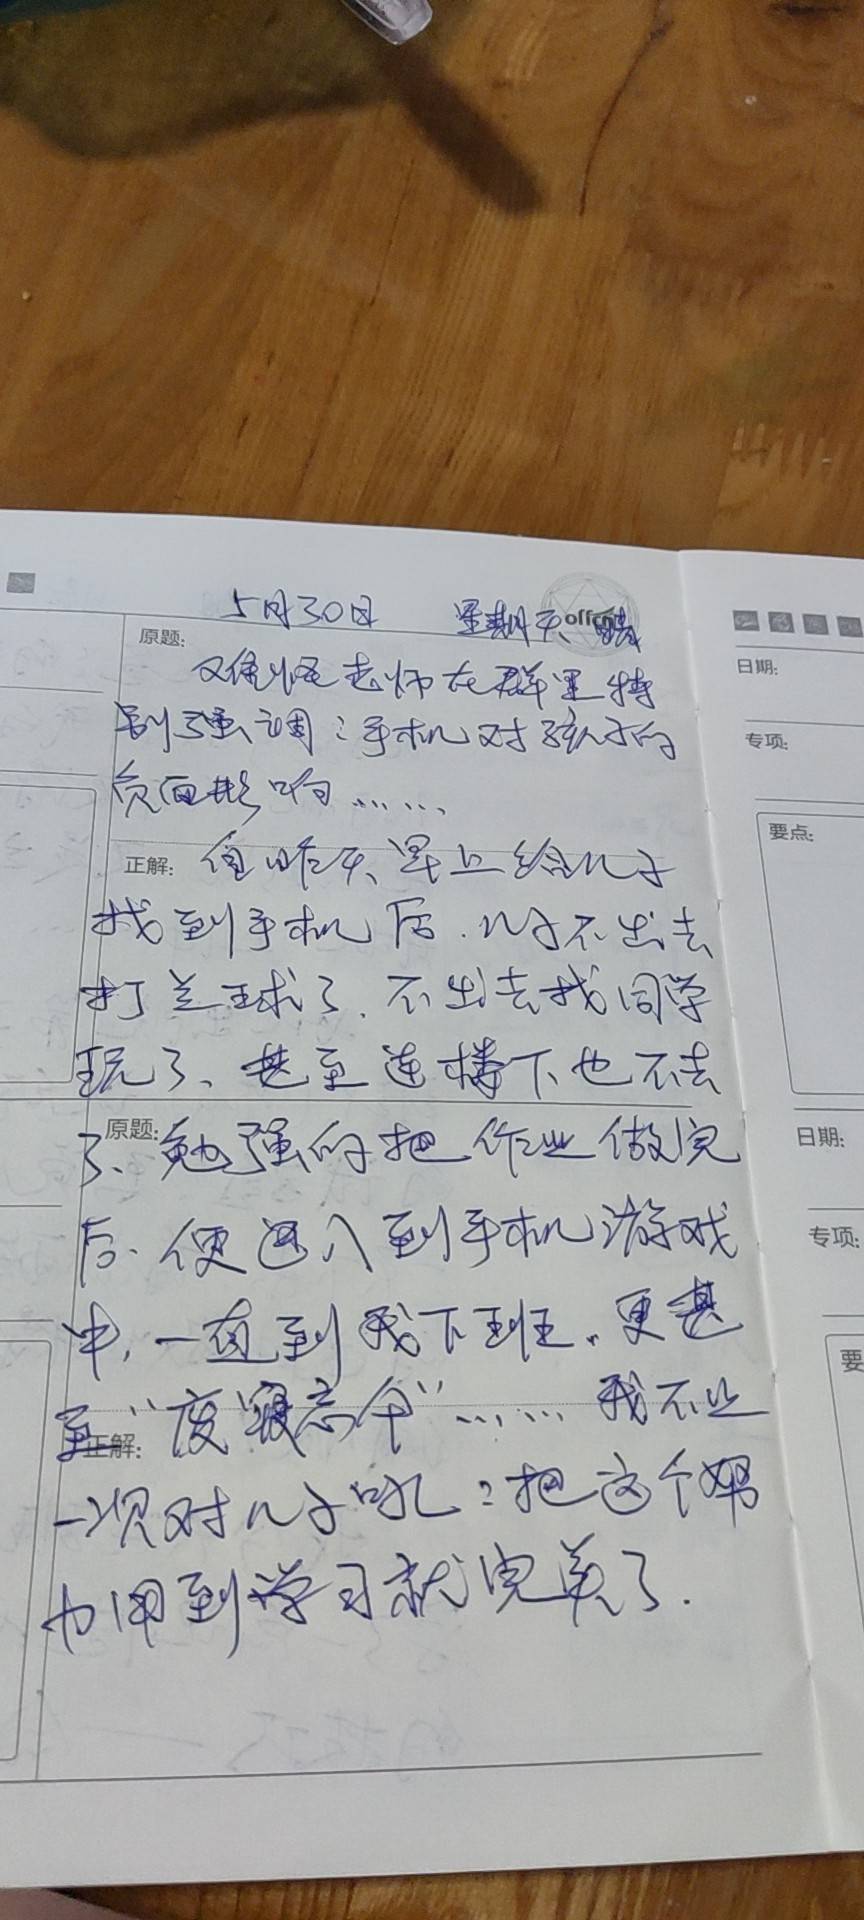 5月30日 星期天 晴
offcn
原题:
难怪老师在群里特
别强调:手机对孩子的
负面影响……
正解: 自昨天早上给儿子
找到手机后,儿子不出去
打兰球了、不出去找同学
玩了、甚至连楼下也不去
原题:
了、勉强的把作业做完
后、便进入到手机游戏
中,一直到我下班。更甚
至“废寝忘食”……我不止
正解:
一次对儿子吼:把这个
力用到学习就完美了.
日期:
专项:
要点:
日期:
专项:
要